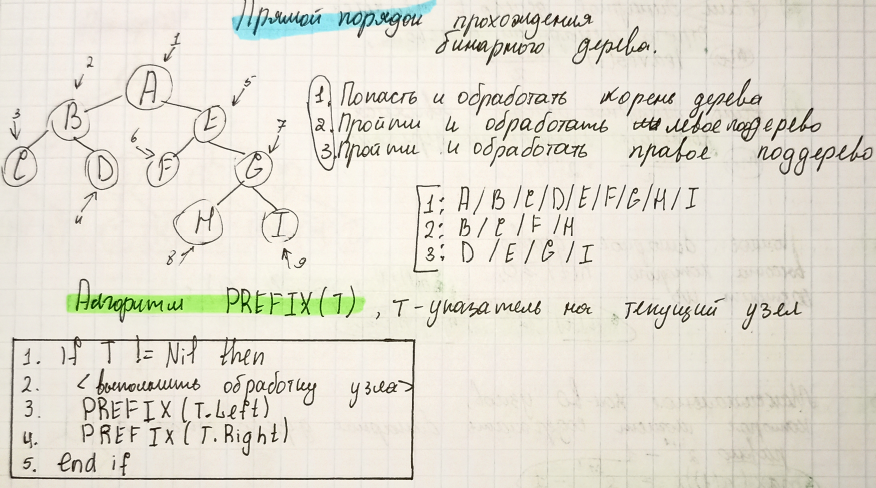 Прямой порядок прохождения
бинарного дерева.
1
2
A
3
B
5
E
6
7
C
D
F
G
4
H
I
8
9
1. Попасть и обработать корень дерева
2. Пройти и обработать левое поддерево
3. Пройти и обработать правое поддерево
1: A / B / C / D / E / F / G / H / I
2: B / C / F / H
3: D / E / G / I
Алгоритм PREFIX(T), T - указатель на текущий узел
1. if T != Nil then
2. <выполнить обработку узла>
3. PREFIX(T.Left)
4. PREFIX(T.Right)
5. end if